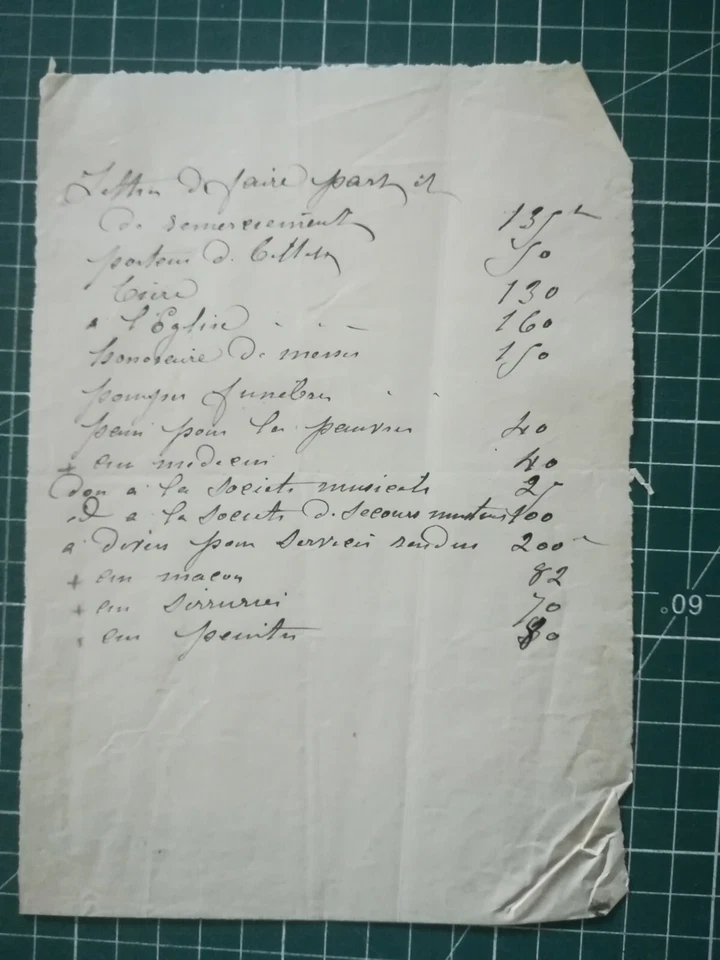 Lettres de faire part et
de remerciement 135
porteur de lettres 50
Cire 130
à l'Eglise 160
honoraire de messes 150
pompes funèbres
pain pour les pauvres 40
+ au médecin 40
Don à la Societé musicale 25
id à la Societé de Secours mutuels 100
à divers pour services rendus 200
+ au maçon 82
+ au serrurier 70
au peintre 80
060